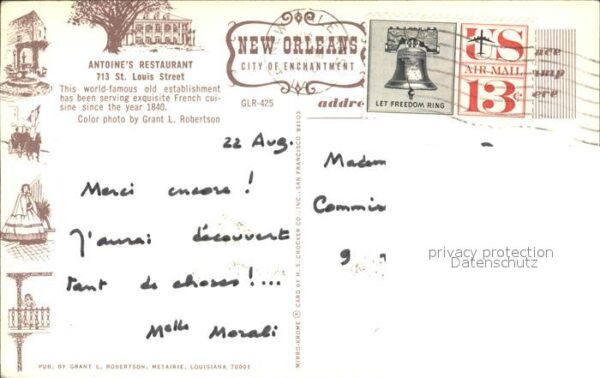 ANTOINE'S RESTAURANT
713 St. Louis Street
This world-famous old establishment
has been serving exquisite French cui-
sine since the year 1840.
Color photo by Grant L. Robertson
NEW ORLEANS
CITY OF ENCHANTMENT
GLR-425
addre
LET FREEDOM RING
US
AIR MAIL
13c
ace
mp
ere
22 Aug.
Merci encore!
J'aurai découvert
tant de choses!...
Melle Morali
MIRRO-KROME ® CARD BY H. S. CROCKER CO., INC., SAN FRANCISCO 94103
Madem
Commis
9
privacy protection
Datenschutz
PUB. BY GRANT L. ROBERTSON, METAIRIE, LOUISIANA 70001